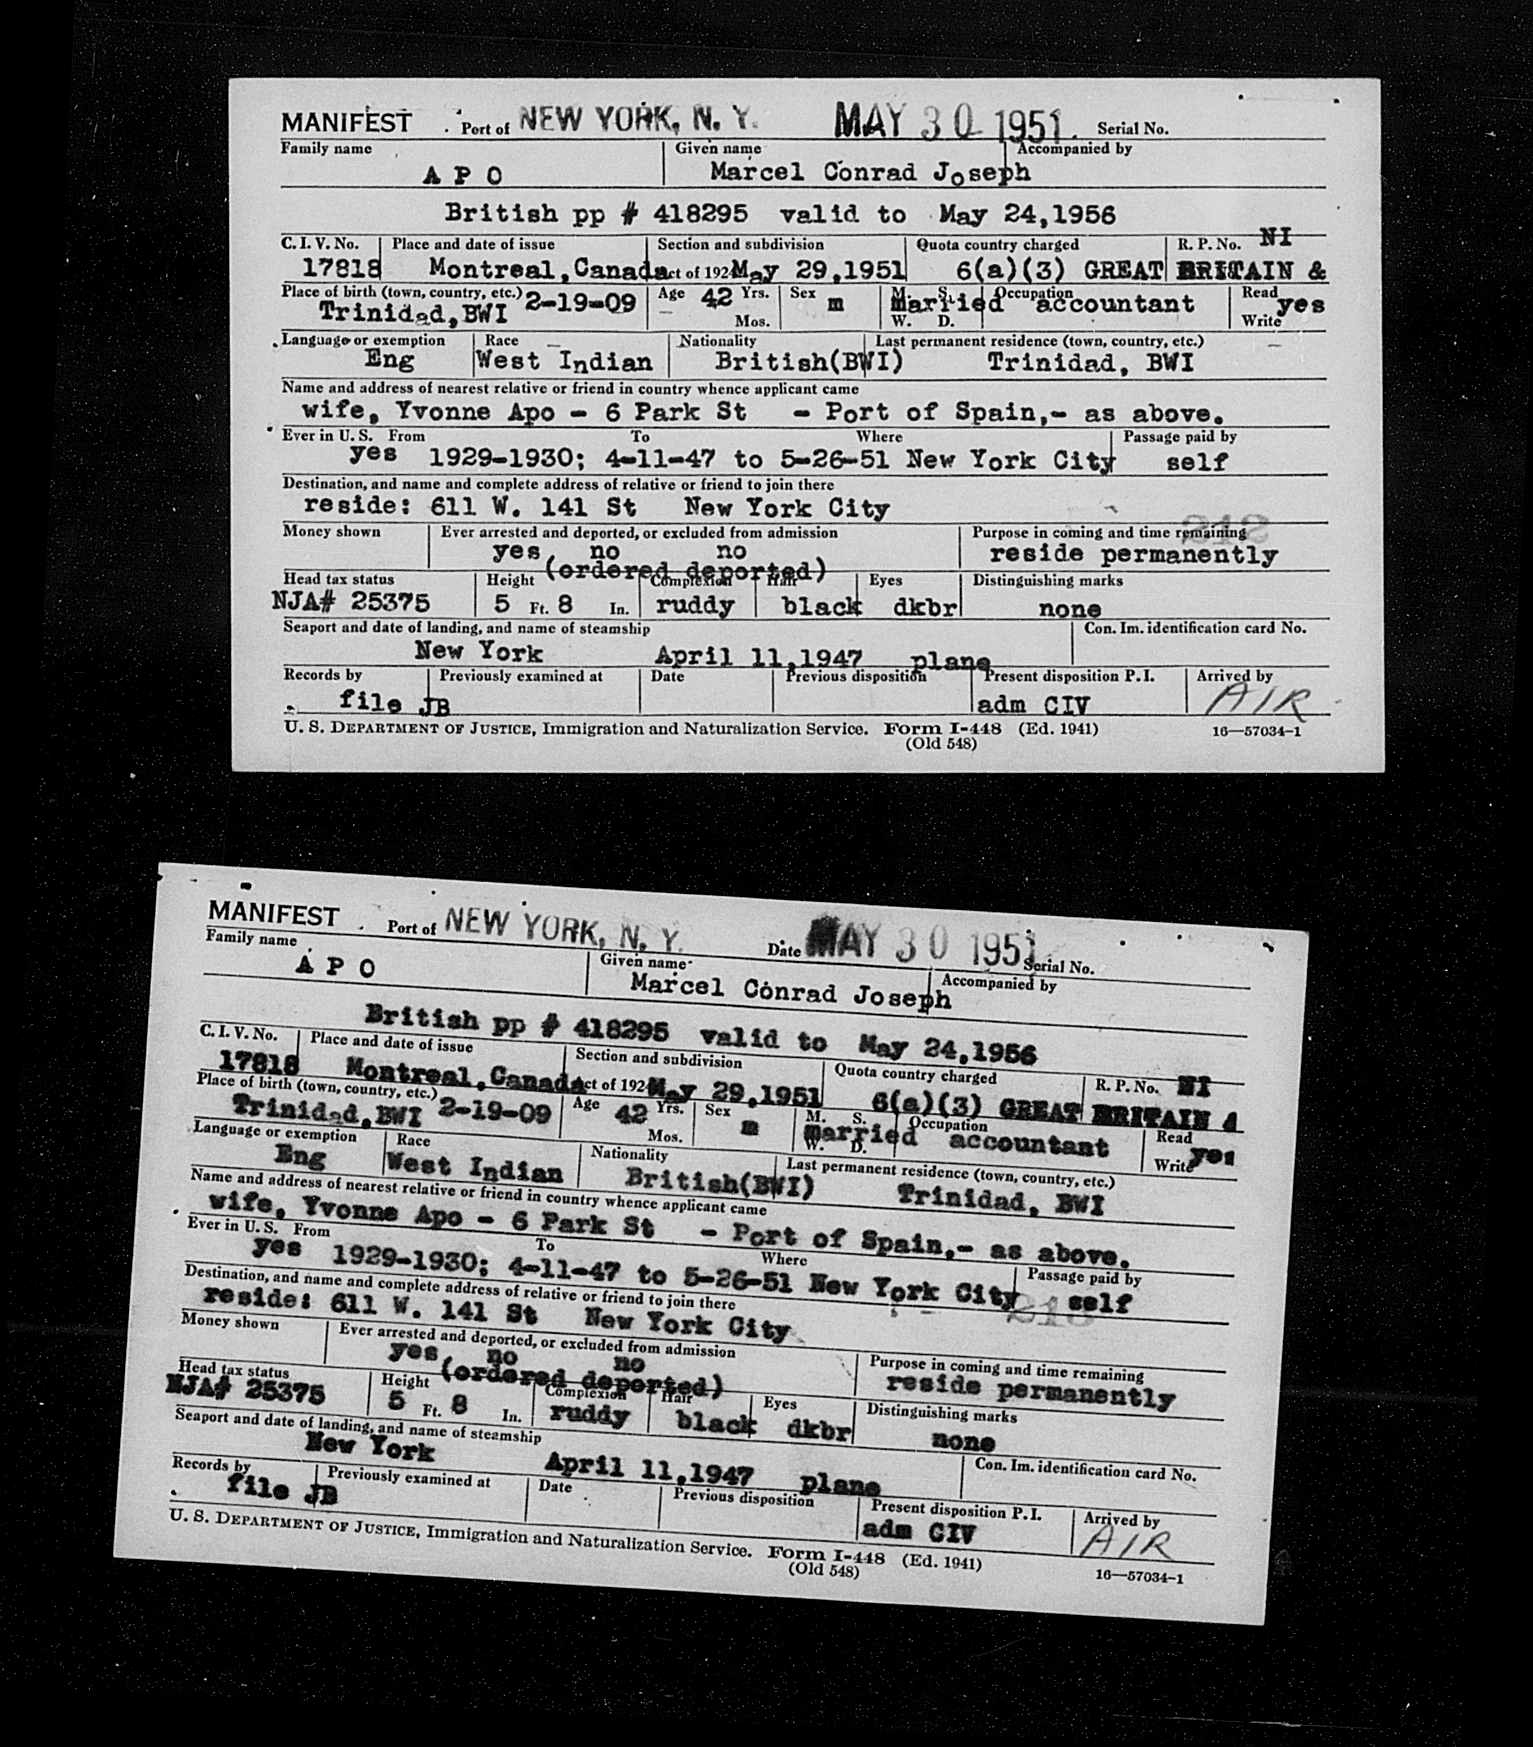 MANIFEST Port of NEW YORK, N. Y. MAY 30 1951 Serial No.
Family name Given name Accompanied by
A P O Marcel Conrad Joseph
British pp # 418295 valid to May 24,1956
C. I. V. No. Place and date of issue Section and subdivision Quota country charged R. P. No. NI
17818 Montreal,Canada Act of 1924 May 29,1951 6(a)(3) GREAT BRITAIN &
Place of birth (town, country, etc.) 2-19-09 Age 42 Yrs. Sex m M. S. married Occupation accountant Read yes
Trinidad,BWI Mos. W. D. Write
Language or exemption Race Nationality Last permanent residence (town, country, etc.)
Eng West Indian British(BWI) Trinidad, BWI
Name and address of nearest relative or friend in country whence applicant came
wife, Yvonne Apo - 6 Park St - Port of Spain,- as above.
Ever in U. S. From To Where Passage paid by
yes 1929-1930; 4-11-47 to 5-26-51 New York City self
Destination, and name and complete address of relative or friend to join there
reside: 611 W. 141 St New York City
Money shown Ever arrested and deported, or excluded from admission Purpose in coming and time remaining
yes, no no reside permanently
(ordered deported)
Head tax status Height Complexion Hair Eyes Distinguishing marks
NJA# 25375 5 Ft. 8 In. ruddy black dkbr none
Seaport and date of landing, and name of steamship Con. Im. identification card No.
New York April 11,1947 plane
Records by Previously examined at Date Previous disposition Present disposition P. I. Arrived by
file JB adm CIV AIR
U. S. DEPARTMENT OF JUSTICE, Immigration and Naturalization Service. Form I-448 (Ed. 1941) 16—57034-1
(Old 548)
MANIFEST Port of NEW YORK, N. Y. Date MAY 30 1951 Serial No.
Family name Given name Accompanied by
A P O Marcel Conrad Joseph
British pp # 418295 valid to May 24,1956
C. I. V. No. Place and date of issue Section and subdivision Quota country charged R. P. No. NI
17818 Montreal,Canada Act of 1924 May 29,1951 6(a)(3) GREAT BRITAIN &
Place of birth (town, country, etc.) 2-19-09 Age 42 Yrs. Sex m M. S. married Occupation accountant Read yes
Trinidad,BWI Mos. W. D. Write
Language or exemption Race Nationality Last permanent residence (town, country, etc.)
Eng West Indian British(BWI) Trinidad, BWI
Name and address of nearest relative or friend in country whence applicant came
wife, Yvonne Apo - 6 Park St - Port of Spain,- as above.
Ever in U. S. From To Where Passage paid by
yes 1929-1930; 4-11-47 to 5-26-51 New York City self
Destination, and name and complete address of relative or friend to join there
reside: 611 W. 141 St New York City
Money shown Ever arrested and deported, or excluded from admission Purpose in coming and time remaining
yes, no no reside permanently
(ordered deported)
Head tax status Height Complexion Hair Eyes Distinguishing marks
NJA# 25375 5 Ft. 8 In. ruddy black dkbr none
Seaport and date of landing, and name of steamship Con. Im. identification card No.
New York April 11,1947 plane
Records by Previously examined at Date Previous disposition Present disposition P. I. Arrived by
file JB adm CIV AIR
U. S. DEPARTMENT OF JUSTICE, Immigration and Naturalization Service. Form I-448 (Ed. 1941) 16—57034-1
(Old 548)